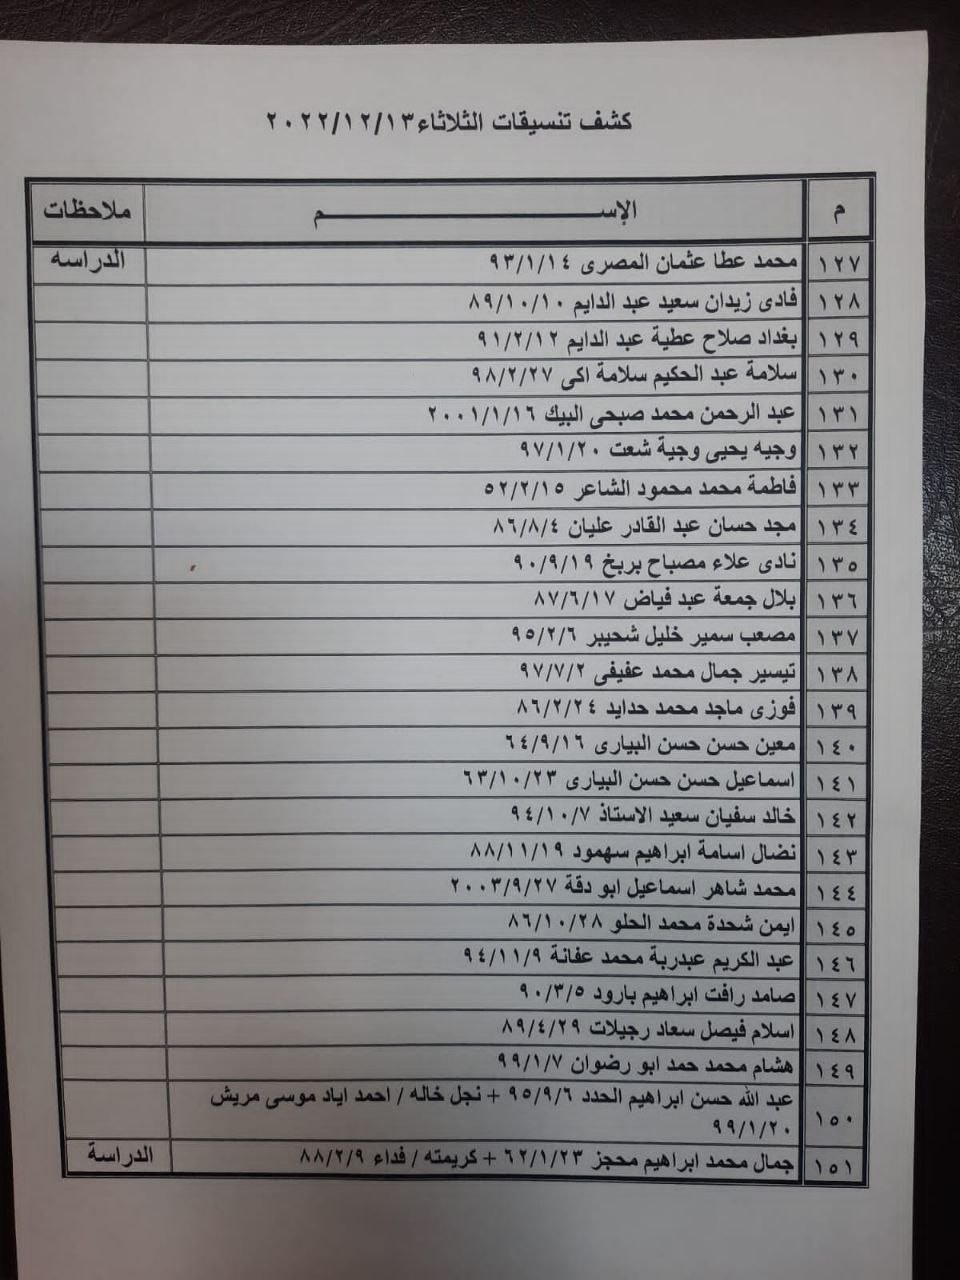 كشف تنسيقات الثلاثاء ٢٠٢٢/١٢/١٣
م الإســـــــــم ملاحظات
١٢٧ محمد عطا عثمان المصرى ٩٣/١/١٤ الدراسه
١٢٨ فادى زيدان سعيد عبد الدايم ٨٩/١٠/١٠
١٢٩ بغداد صلاح عطية عبد الدايم ٩١/٢/١٢
١٣٠ سلامة عبد الحكيم سلامة اكى ٩٨/٢/٢٧
١٣١ عبد الرحمن محمد صبحى البيك ٢٠٠١/١/١٦
١٣٢ وجيه يحيى وجية شعت ٩٧/١/٢٠
١٣٣ فاطمة محمد محمود الشاعر ٥٢/٢/١٥
١٣٤ مجد حسان عبد القادر عليان ٨٦/٨/٤
١٣٥ نادى علاء مصباح بربخ ٩٠/٩/١٩
١٣٦ بلال جمعة عبد فياض ٨٧/٦/١٧
١٣٧ مصعب سمير خليل شحيبر ٩٥/٢/٦
١٣٨ تيسير جمال محمد عفيفى ٩٧/٧/٢
١٣٩ فوزى ماجد محمد حدايد ٨٦/٢/٢٤
١٤٠ معين حسن حسن البيارى ٦٤/٩/١٦
١٤١ اسماعيل حسن حسن البيارى ٦٣/١٠/٢٣
١٤٢ خالد سفيان سعيد الاستاذ ٩٤/١٠/٧
١٤٣ نضال اسامة ابراهيم سهمود ٨٨/١١/١٩
١٤٤ محمد شاهر اسماعيل ابو دقة ٢٠٠٣/٩/٢٧
١٤٥ ايمن شحدة محمد الحلو ٨٦/١٠/٢٨
١٤٦ عبد الكريم عبدربة محمد عفانة ٩٤/١١/٩
١٤٧ صامد رافت ابراهيم بارود ٩٠/٣/٥
١٤٨ اسلام فيصل سعاد رجيلات ٨٩/٤/٢٩
١٤٩ هشام محمد حمد ابو رضوان ٩٩/١/٧
١٥٠ عبد الله حسن ابراهيم الحدد ٩٥/٩/٦ + نجل خاله / احمد اياد موسى مريش
٩٩/١/٢٠
١٥١ جمال محمد ابراهيم محجز ٦٢/١/٢٣ + كريمته / فداء ٨٨/٢/٩ الدراسة